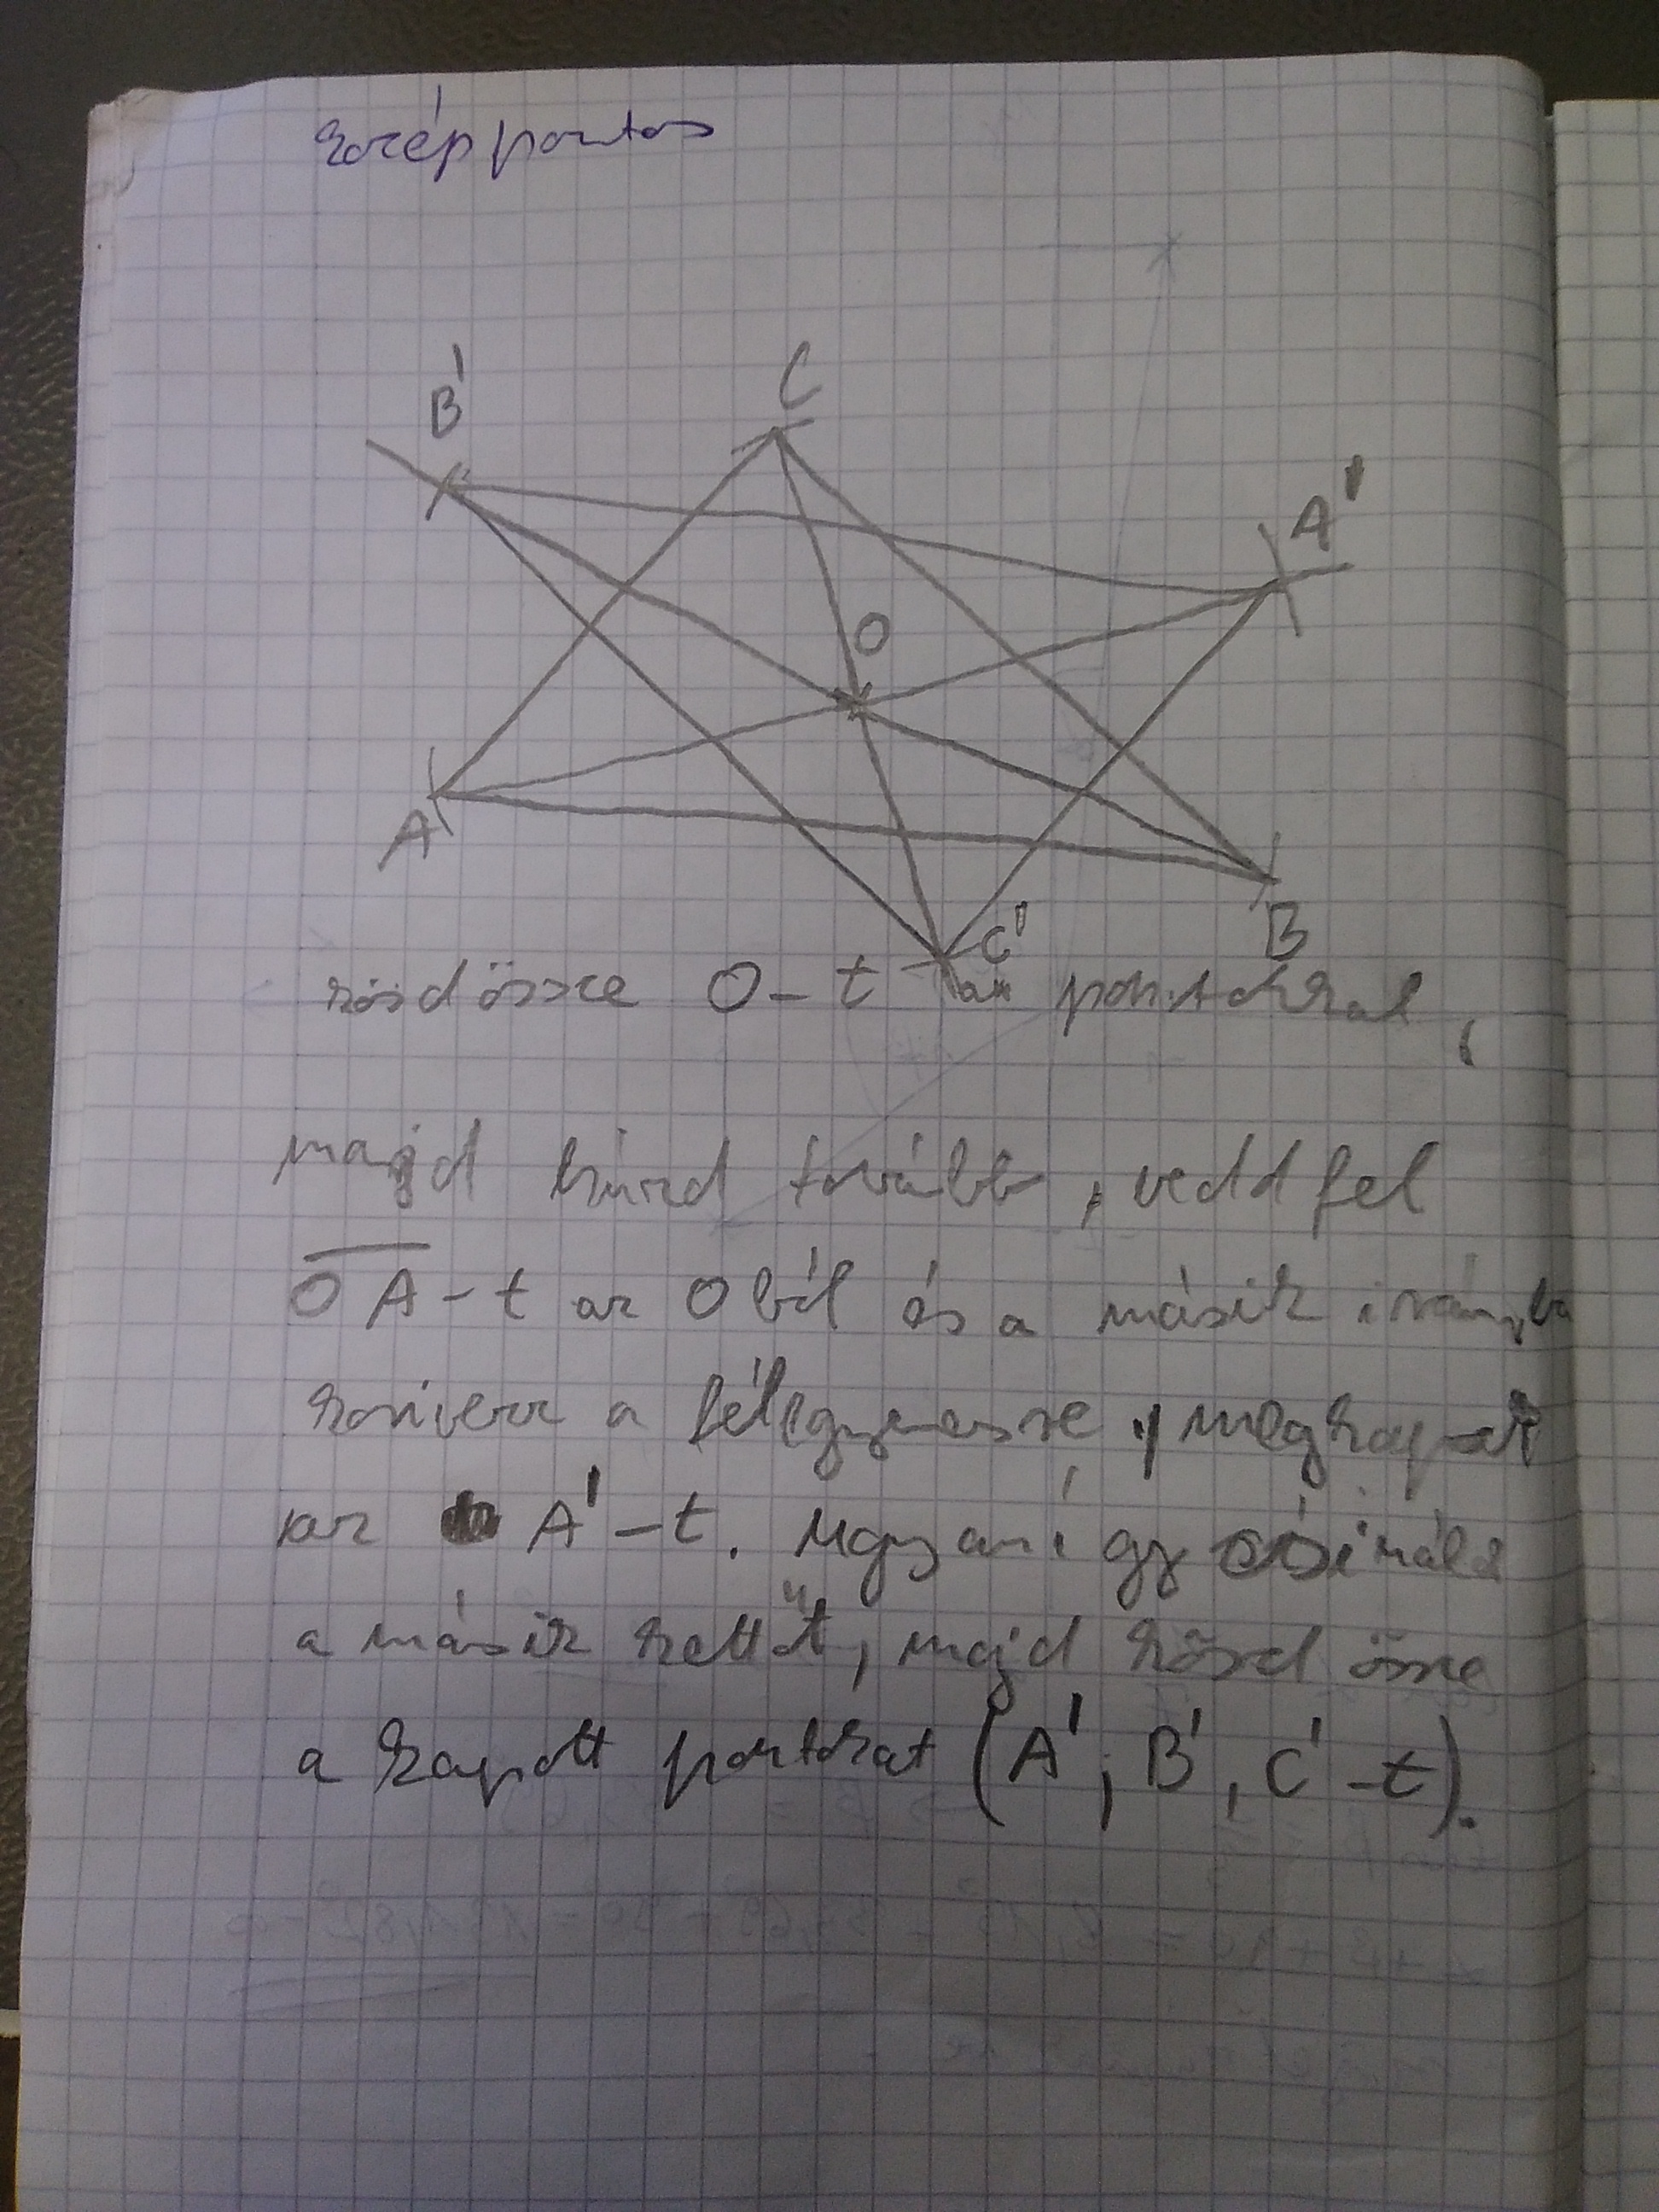 középpontos
B'
C
A'
O
A
B
C'
kösd össze O-t a pontokkal,
majd húzd tovább, vedd fel
OA-t az Oból és a másik irányba
a félegyenesre, megkapod
az A'-t. Ugyanígy csináld
a másik kettőt, majd kösd össze
a kapott pontokat (A'; B', C'-t).